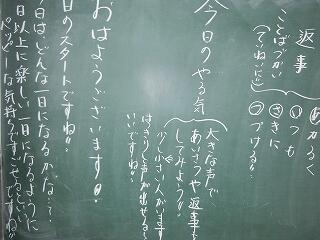 返事
ことばづかい
(ていねいに)
あかるく
いつも
さきに
つづける!!
今日のやる気
大きな声で
あいさつや返事を
してみよう!!
少し小さい人がいます
はっきりと声が出せると
いいですね!!
おはようございます!!
日のスタートですね!!
今日は、どんな一日になるかな…?
日以上に楽しい一日になるように
ハッピーな気持ちですごせるといい
ですね!!